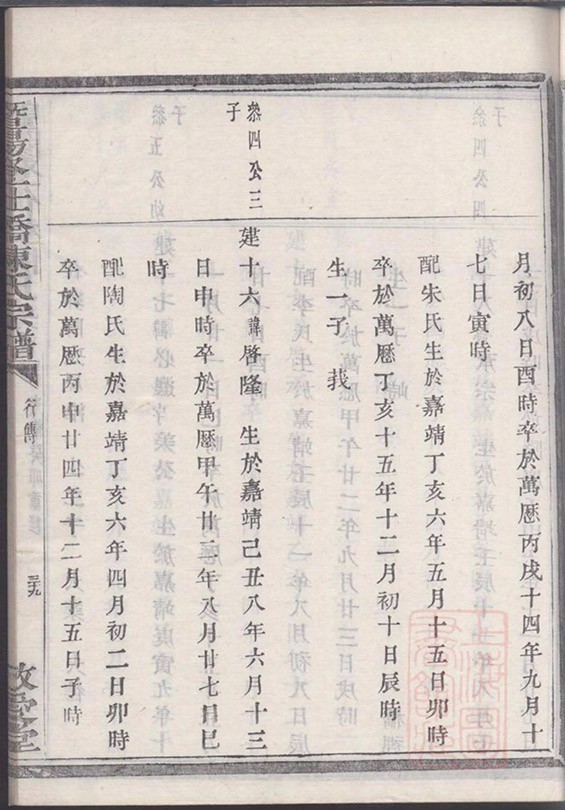 月初八日酉時卒於萬厯丙戌十四年九月十
七日寅時
配朱氏生於嘉靖丁亥六年五月十五日卯時
卒於萬厯丁亥十五年十二月初十日辰時
生一子 莪
叅四公三
子
建十六諱啓隆 生於嘉靖己丑八年六月十三
日申時卒於萬厯甲午廿二年八月廿七日巳
時
配陶氏生於嘉靖丁亥六年四月初二日卯時
卒於萬厯丙申廿四年十二月十五日子時
橋陳氏宗譜
行傳
敬愛堂